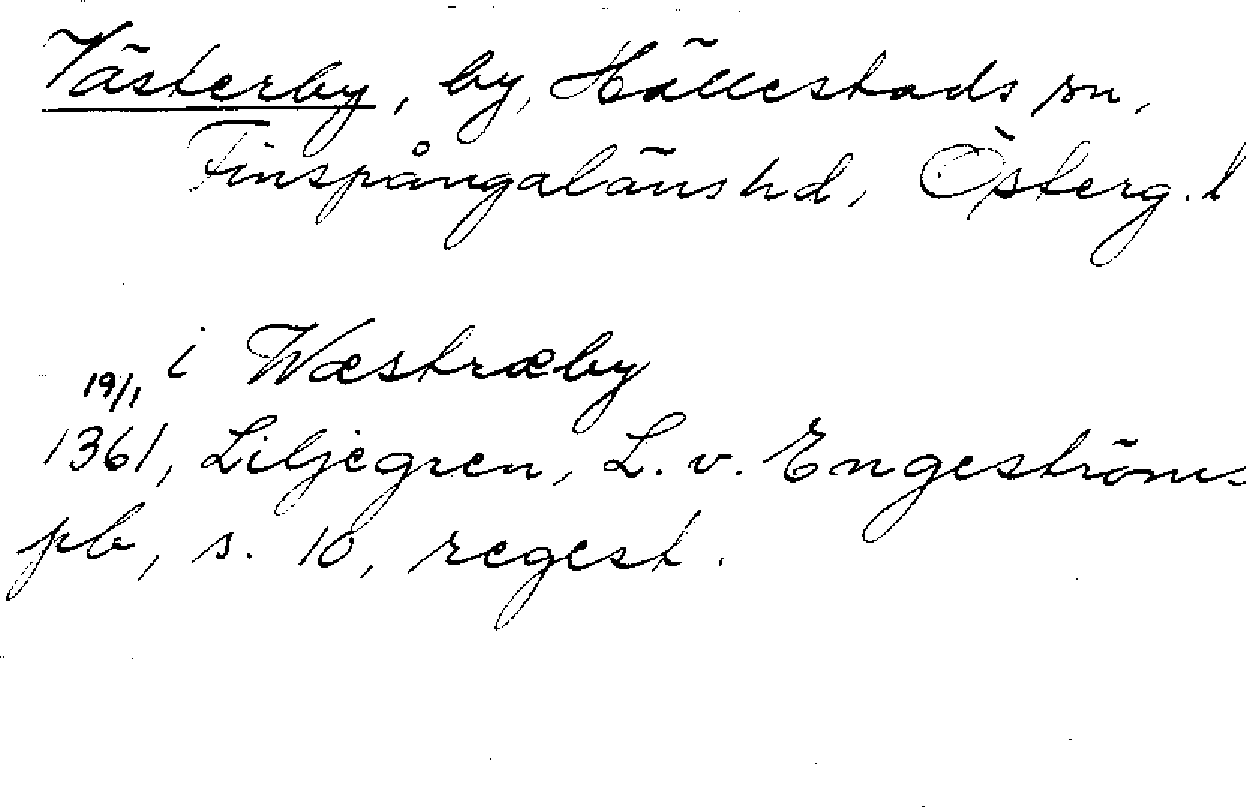 Västerby, by, Hällestads sn,
Finspångaläns hd, Österg. l
i Wæstræby
19/1
1361, Liljegren, L. v. Engeströms
pb, s. 10, regest.